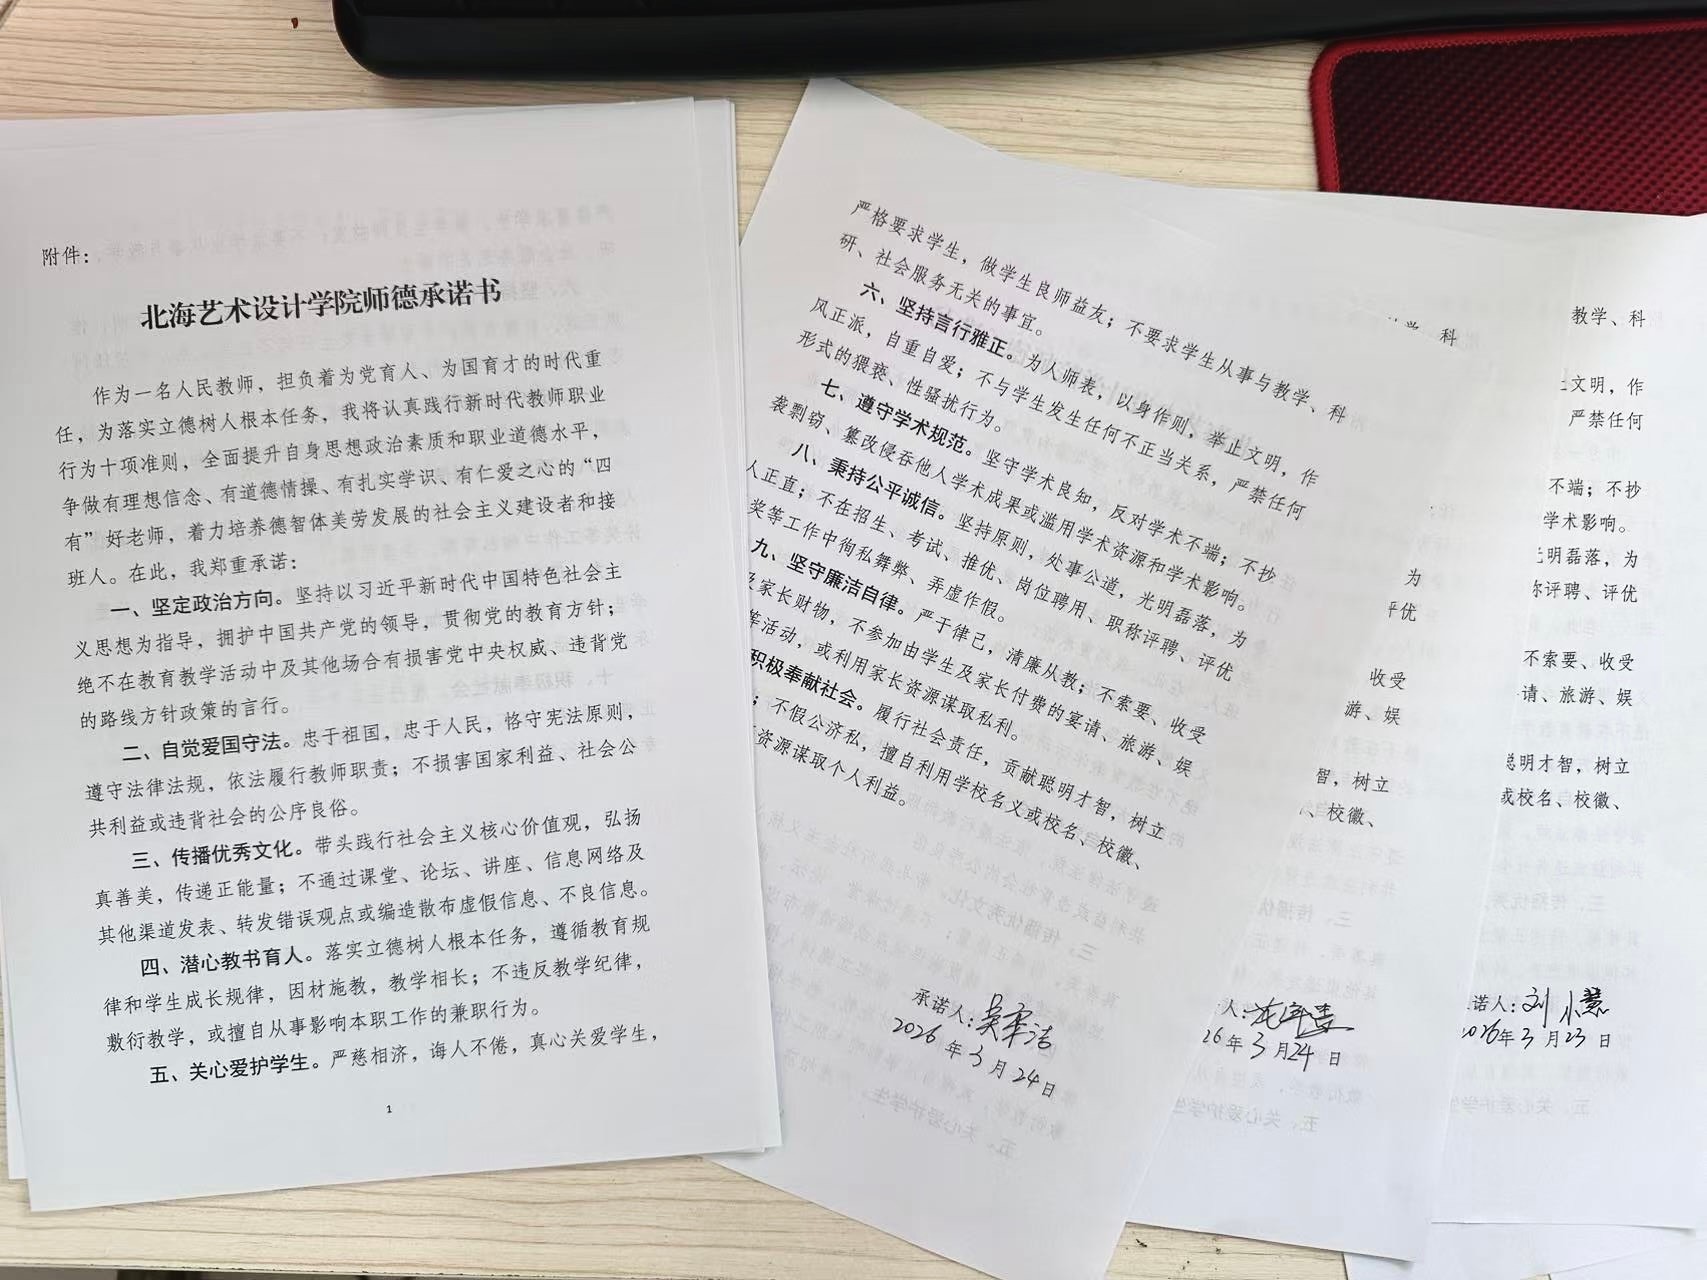 附件：
北海艺术设计学院师德承诺书
作为一名人民教师，担负着为党育人、为国育才的时代重
任，为落实立德树人根本任务，我将认真践行新时代教师职业
行为十项准则，全面提升自身思想政治素质和职业道德水平，
争做有理想信念、有道德情操、有扎实学识、有仁爱之心的“四
有”好老师，着力培养德智体美劳发展的社会主义建设者和接
班人。在此，我郑重承诺：
一、坚定政治方向。坚持以习近平新时代中国特色社会主
义思想为指导，拥护中国共产党的领导，贯彻党的教育方针；
绝不在教育教学活动中及其他场合有损害党中央权威、违背党
的路线方针政策的言行。
二、自觉爱国守法。忠于祖国，忠于人民，恪守宪法原则，
遵守法律法规，依法履行教师职责；不损害国家利益、社会公
共利益或违背社会的公序良俗。
三、传播优秀文化。带头践行社会主义核心价值观，弘扬
真善美，传递正能量；不通过课堂、论坛、讲座、信息网络及
其他渠道发表、转发错误观点或编造散布虚假信息、不良信息。
四、潜心教书育人。落实立德树人根本任务，遵循教育规
律和学生成长规律，因材施教，教学相长；不违反教学纪律，
敷衍教学，或擅自从事影响本职工作的兼职行为。
五、关心爱护学生。严慈相济，诲人不倦，真心关爱学生，
1
严格要求学生，做学生良师益友；不要求学生从事与教学、科
研、社会服务无关的事宜。
六、坚持言行雅正。为人师表，以身作则，举止文明，作
风正派，自重自爱；不与学生发生任何不正当关系，严禁任何
形式的猥亵、性骚扰行为。
七、遵守学术规范。坚守学术良知，反对学术不端；不抄
袭剽窃、篡改侵吞他人学术成果或滥用学术资源和学术影响。
八、秉持公平诚信。坚持原则，处事公道，光明磊落，为
人正直；不在招生、考试、推优、岗位聘用、职称评聘、评优
奖等工作中徇私舞弊、弄虚作假。
九、坚守廉洁自律。严于律己，清廉从教；不索要、收受
及家长财物，不参加由学生及家长付费的宴请、旅游、娱
等活动，或利用家长资源谋取私利。
积极奉献社会。履行社会责任，贡献聪明才智，树立
；不假公济私，擅自利用学校名义或校名、校徽、
资源谋取个人利益。
承诺人：
2026年3月24日
科
为
评优
收受
游、娱
智，树立
、校徽、
人：
26年3月24日
教学、科
文明，作
严禁任何
不端；不抄
学术影响。
光明磊落，为
称评聘、评优
不索要、收受
请、旅游、娱
聪明才智，树立
或校名、校徽、
承诺人：刘小慧
2026年3月23日